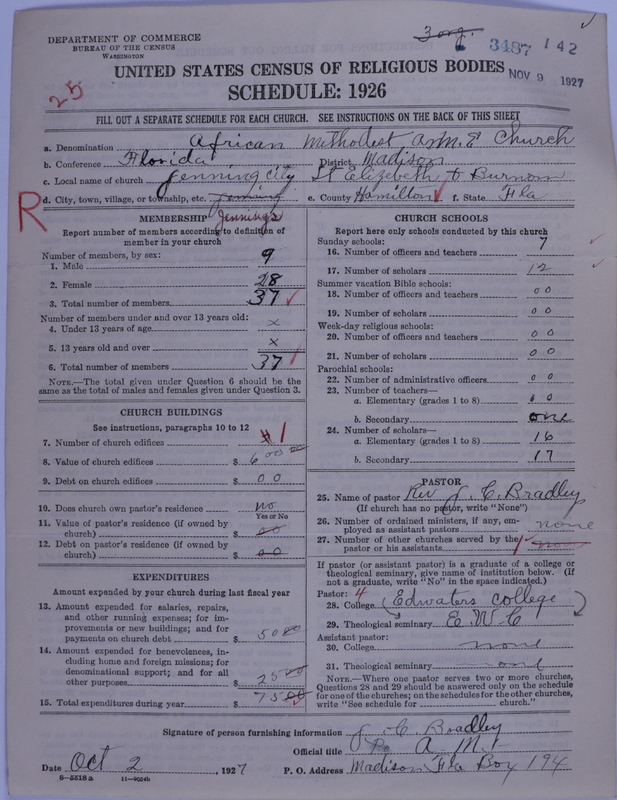 DEPARTMENT OF COMMERCE
BUREAU OF THE CENSUS
WASHINGTON
3 org.
3487 142
NOV 9 1927
25
UNITED STATES CENSUS OF RELIGIOUS BODIES
SCHEDULE: 1926
FILL OUT A SEPARATE SCHEDULE FOR EACH CHURCH. SEE INSTRUCTIONS ON THE BACK OF THIS SHEET
a. Denomination African Methodest Church
b. Conference Florida District Madison
c. Local name of church Jenning City St Elizebeth
R
d. City, town, village, or township, etc. Jenning e. County Hamilton f. State Fla
Jennings
MEMBERSHIP
Report number of members according to definition of member in your church
Number of members, by sex:
1. Male 9
2. Female 28
3. Total number of members 37
Number of members under and over 13 years old:
4. Under 13 years of age x
5. 13 years old and over x
6. Total number of members 37
NOTE.—The total given under Question 6 should be the same as the total of males and females given under Question 3.
CHURCH BUILDINGS
See instructions, paragraphs 10 to 12
7. Number of church edifices 1
8. Value of church edifices $ 600
9. Debt on church edifices $ 00
10. Does church own pastor's residence no
Yes or No
11. Value of pastor's residence (if owned by church) $ 00
12. Debt on pastor's residence (if owned by church) $ 00
EXPENDITURES
Amount expended by your church during last fiscal year
13. Amount expended for salaries, repairs, and other running expenses; for improvements or new buildings; and for payments on church debt $ 50 00
14. Amount expended for benevolences, including home and foreign missions; for denominational support; and for all other purposes $ 25 00
15. Total expenditures during year $ 75 00
CHURCH SCHOOLS
Report here only schools conducted by this church
Sunday schools:
16. Number of officers and teachers 7
17. Number of scholars 12
Summer vacation Bible schools:
18. Number of officers and teachers 00
19. Number of scholars 00
Week-day religious schools:
20. Number of officers and teachers 00
21. Number of scholars 00
Parochial schools:
22. Number of administrative officers 00
23. Number of teachers—
a. Elementary (grades 1 to 8) 0
b. Secondary one
24. Number of scholars—
a. Elementary (grades 1 to 8) 16
b. Secondary 17
PASTOR
25. Name of pastor Rev J. C. Bradley
(If church has no pastor, write "None")
26. Number of ordained ministers, if any, employed as assistant pastors none
27. Number of other churches served by the pastor or his assistants 1 none
If pastor (or assistant pastor) is a graduate of a college or theological seminary, give name of institution below. (If not a graduate, write "No" in the space indicated.)
Pastor: 4
28. College Edwaters college
29. Theological seminary E W C
Assistant pastor:
30. College none
31. Theological seminary none
NOTE.—Where one pastor serves two or more churches, Questions 28 and 29 should be answered only on the schedule for one of the churches; on the schedules for the other churches, write "See schedule for church."
Signature of person furnishing information J. C. Bradley
Official title
Date Oct 2, 1927 P. O. Address Madison Fla Box 194
6—5518a 11—9054b